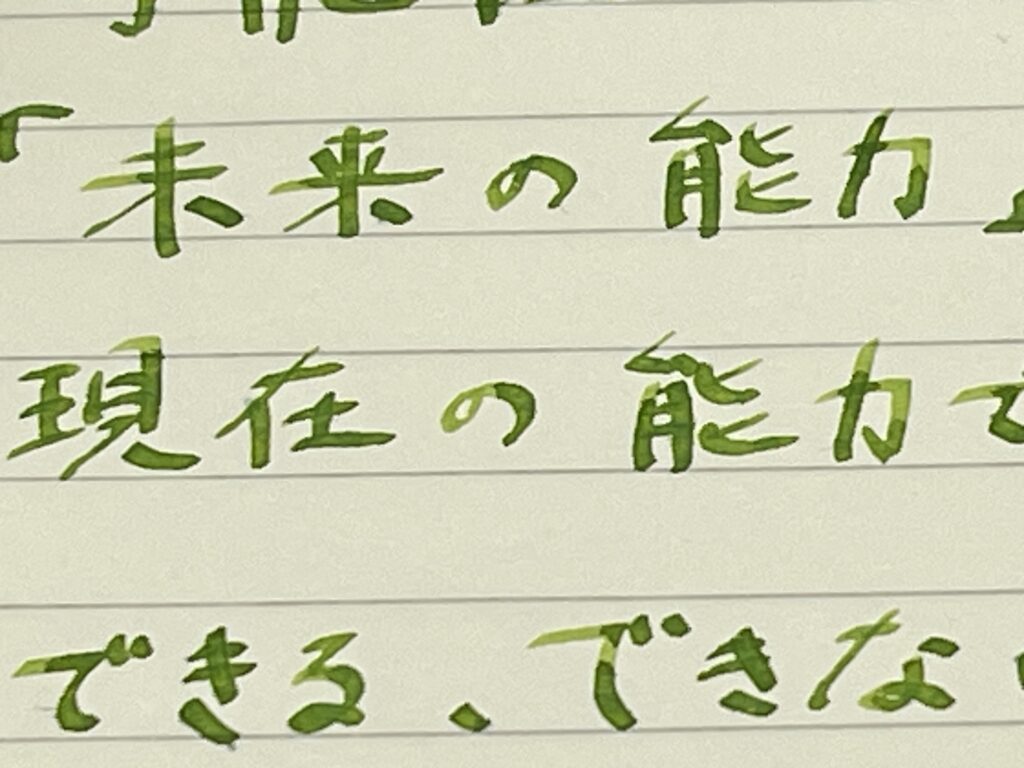 「未来の能力」
現在の能力で
できる、できな